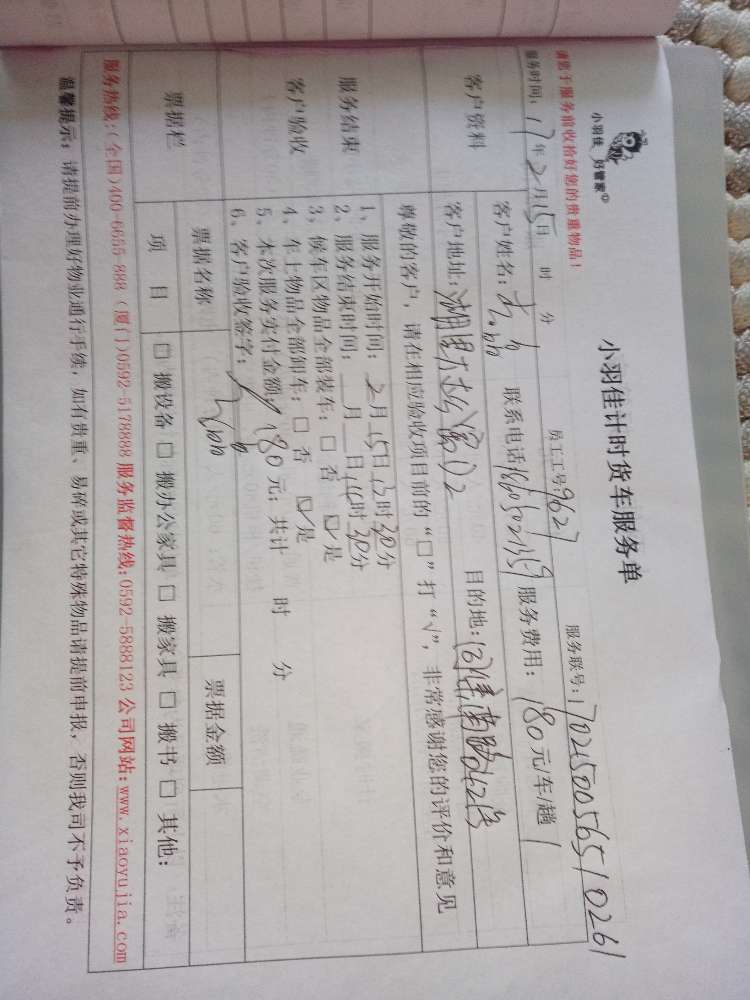 小羽佳 好管家
小羽佳计时货车服务单
请您于服务前收拾好您的贵重物品！
员工工号：9627
服务联号：1702150056510261
服务时间：17年2月15日 时 分
客户资料
客户姓名：
联系电话：
服务费用：180元/车/趟
客户地址：
目的地：
尊敬的客户，请在相应验收项目前的“□”打“√”，非常感谢您的评价和意见
服务结束
客户验收
1、服务开始时间：2月15日13时30分
2、服务结束时间：__月__日16时30分
3、候车区物品全部装车：□ 否 ☑ 是
4、车上物品全部卸车：□ 否 ☑ 是
5、本次服务实付金额：180元；共计 时 分
6、客户验收签字：
票据栏
票据名称
票据金额
项目
□ 搬设备 □ 搬办公家具 □ 搬家具 □ 搬书 □ 其他：
服务热线：(全国)400-6655-888 (厦门)0592-5178888 服务监督热线：0592-5888123 公司网站：www.xiaoyujia.com
温馨提示：请提前办理好物业通行手续，如有贵重、易碎或其它特殊物品请提前申报，否则我司不予负责。